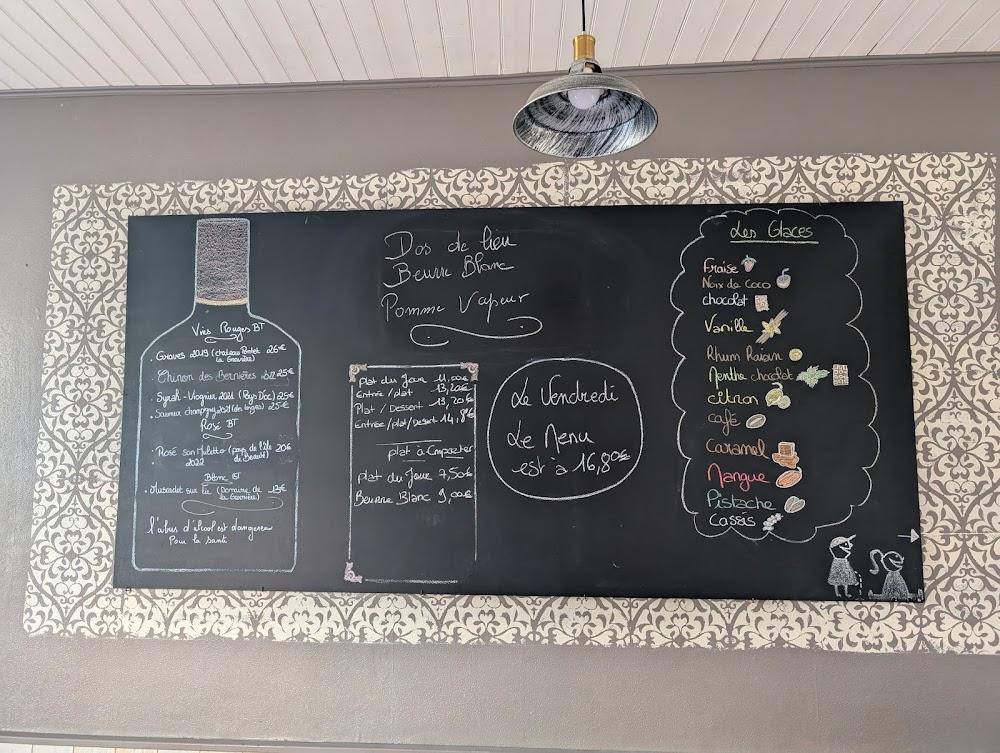 Vins Rouges BT
. Graves 2019 (chateau Pontet
la Gravière) 26€
. Chinon des Bernières BIZ 25€
. Syrah - Viognier 2021 (Pays D'oc) 25€
. Saumur champigny 2021 (des Loges) 25€
Rosé BT
. Rosé San Miletto (pays de l'île 20€
2022 de Beauté)
Blanc BT
. Muscadet sur lie (Domaine de 19€
la Gravière)
l'abus d'alcool est dangereux
Pour la santé
Dos de lieu
Beurre Blanc
Pomme Vapeur
plat du Jour 11,00€
Entrée / plat 13,20€
Plat / Dessert 13,20€
Entrée / plat / Dessert 14,80€
plat à Emporter
plat du Jour 7,50€
Beurre Blanc 9,00€
Le Vendredi
Le Menu
est à 16,80€
Les Glaces
Fraise
Noix de Coco
chocolat
Vanille
Rhum Raisin
Menthe chocolat
citron
café
Caramel
Mangue
Pistache
Cassis